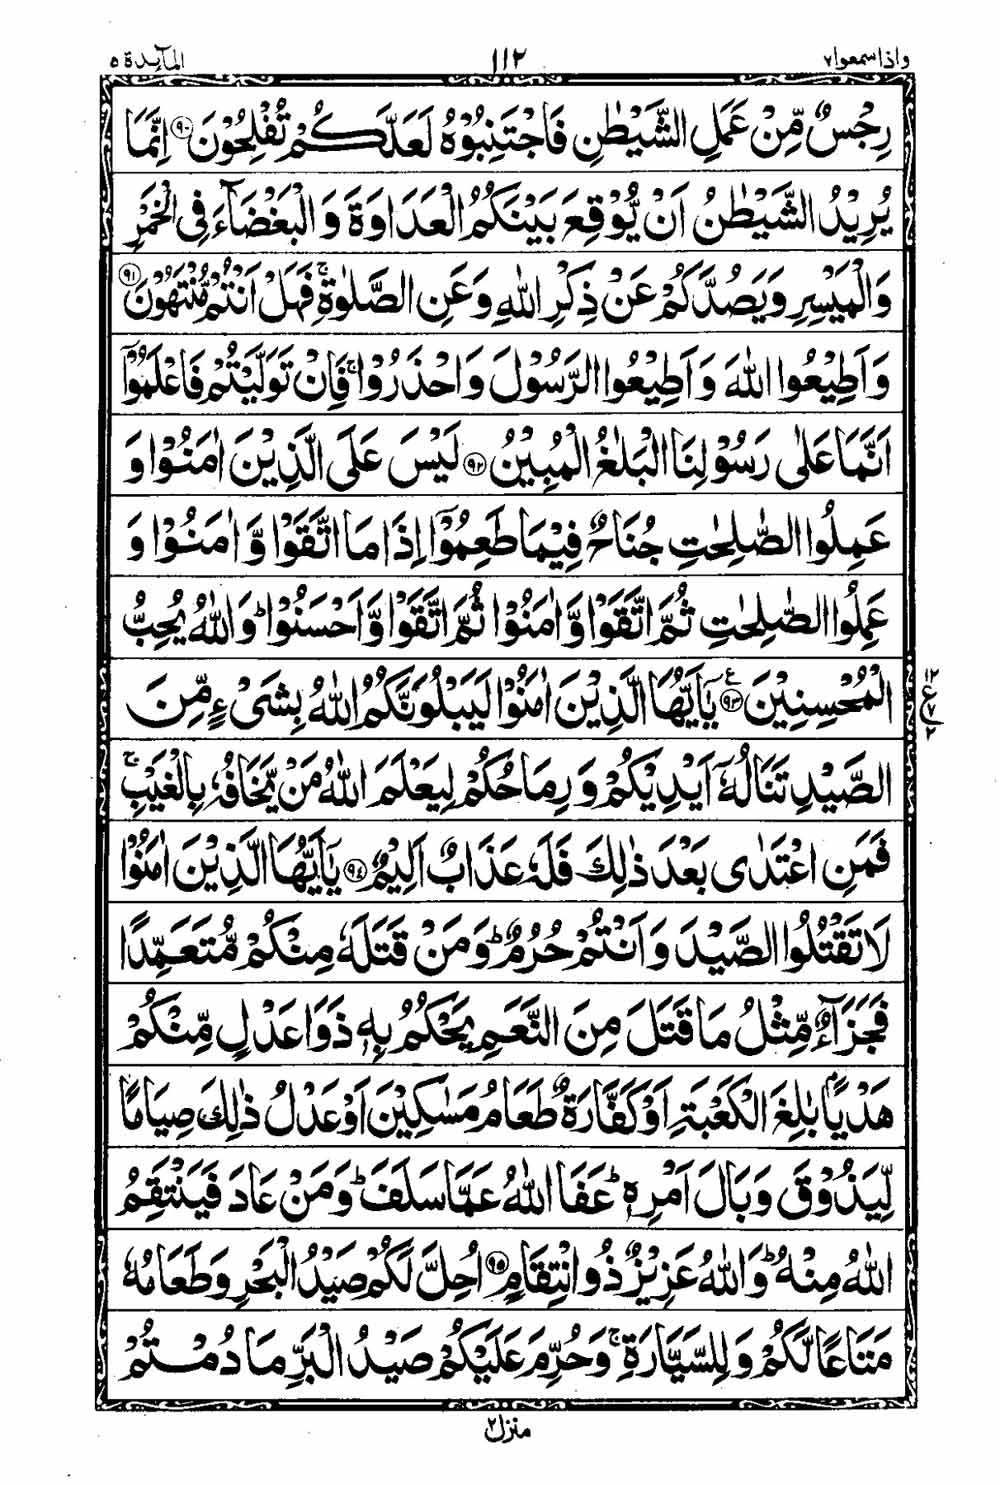 واذاسمعوا٧ ١١٢ المآىِٕدة ٥
رِجْسٌ مِّنْ عَمَلِ الشَّيْطٰنِ فَاجْتَنِبُوْهُ لَعَلَّكُمْ تُفْلِحُوْنَ ﴿٩٠﴾ اِنَّمَا
يُرِيْدُ الشَّيْطٰنُ اَنْ يُّوْقِعَ بَيْنَكُمُ الْعَدَاوَةَ وَالْبَغْضَآءَ فِى الْخَمْرِ
وَالْمَيْسِرِ وَيَصُدَّكُمْ عَنْ ذِكْرِ اللّٰهِ وَعَنِ الصَّلٰوةِ ۚ فَهَلْ اَنْتُمْ مُّنْتَهُوْنَ ﴿٩١﴾
وَاَطِيْعُوا اللّٰهَ وَاَطِيْعُوا الرَّسُوْلَ وَاحْذَرُوْا ۚ فَاِنْ تَوَلَّيْتُمْ فَاعْلَمُوْۤا
اَنَّمَا عَلٰى رَسُوْلِنَا الْبَلٰغُ الْمُبِيْنُ ﴿٩٢﴾ لَيْسَ عَلَى الَّذِيْنَ اٰمَنُوْا وَ
عَمِلُوا الصّٰلِحٰتِ جُنَاحٌ فِيْمَا طَعِمُوْۤا اِذَا مَا اتَّقَوْا وَّاٰمَنُوْا وَ
عَمِلُوا الصّٰلِحٰتِ ثُمَّ اتَّقَوْا وَّاٰمَنُوْا ثُمَّ اتَّقَوْا وَّاَحْسَنُوْا ؕ وَاللّٰهُ يُحِبُّ
الْمُحْسِنِيْنَ ﴿٩٣﴾ ع يٰۤاَيُّهَا الَّذِيْنَ اٰمَنُوْا لَيَبْلُوَنَّكُمُ اللّٰهُ بِشَىْءٍ مِّنَ
١٢
ع ٧
٢
الصَّيْدِ تَنَالُهٗۤ اَيْدِيْكُمْ وَرِمَاحُكُمْ لِيَعْلَمَ اللّٰهُ مَنْ يَّخَافُهٗ بِالْغَيْبِ ۚ
فَمَنِ اعْتَدٰى بَعْدَ ذٰلِكَ فَلَهٗ عَذَابٌ اَلِيْمٌ ﴿٩٤﴾ يٰۤاَيُّهَا الَّذِيْنَ اٰمَنُوْا
لَا تَقْتُلُوا الصَّيْدَ وَاَنْتُمْ حُرُمٌ ؕ وَمَنْ قَتَلَهٗ مِنْكُمْ مُّتَعَمِّدًا
فَجَزَآءٌ مِّثْلُ مَا قَتَلَ مِنَ النَّعَمِ يَحْكُمُ بِهٖ ذَوَا عَدْلٍ مِّنْكُمْ
هَدْيًۢا بٰلِغَ الْكَعْبَةِ اَوْ كَفَّارَةٌ طَعَامُ مَسٰكِيْنَ اَوْ عَدْلُ ذٰلِكَ صِيَامًا
لِّيَذُوْقَ وَبَالَ اَمْرِهٖ ؕ عَفَا اللّٰهُ عَمَّا سَلَفَ ؕ وَمَنْ عَادَ فَيَنْتَقِمُ
اللّٰهُ مِنْهُ ؕ وَاللّٰهُ عَزِيْزٌ ذُو انْتِقَامٍ ﴿٩٥﴾ اُحِلَّ لَكُمْ صَيْدُ الْبَحْرِ وَطَعَامُهٗ
مَتَاعًا لَّكُمْ وَلِلسَّيَّارَةِ ۚ وَحُرِّمَ عَلَيْكُمْ صَيْدُ الْبَرِّ مَا دُمْتُمْ
منزل ٢